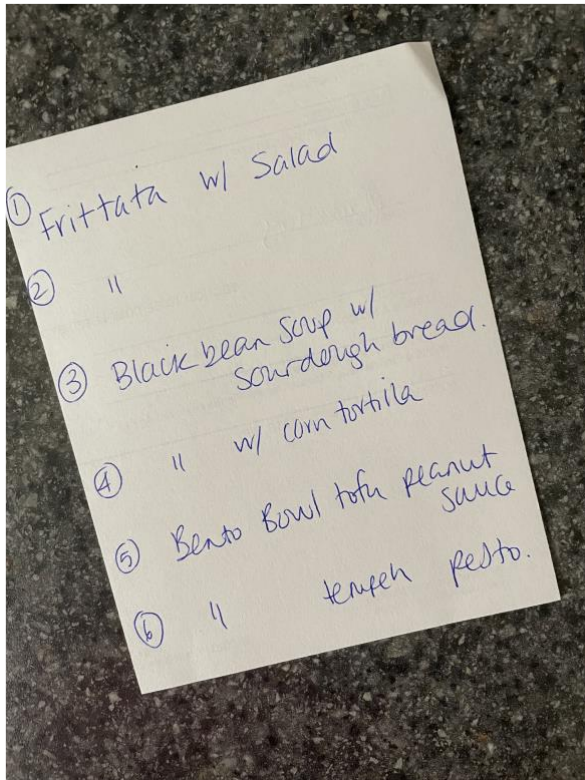 ① Frittata w/ Salad
② "
③ Black bean Soup w/
sourdough bread.
④ " w/ corn tortilla
⑤ Bento Bowl tofu peanut
sauce
⑥ " tempeh pesto.